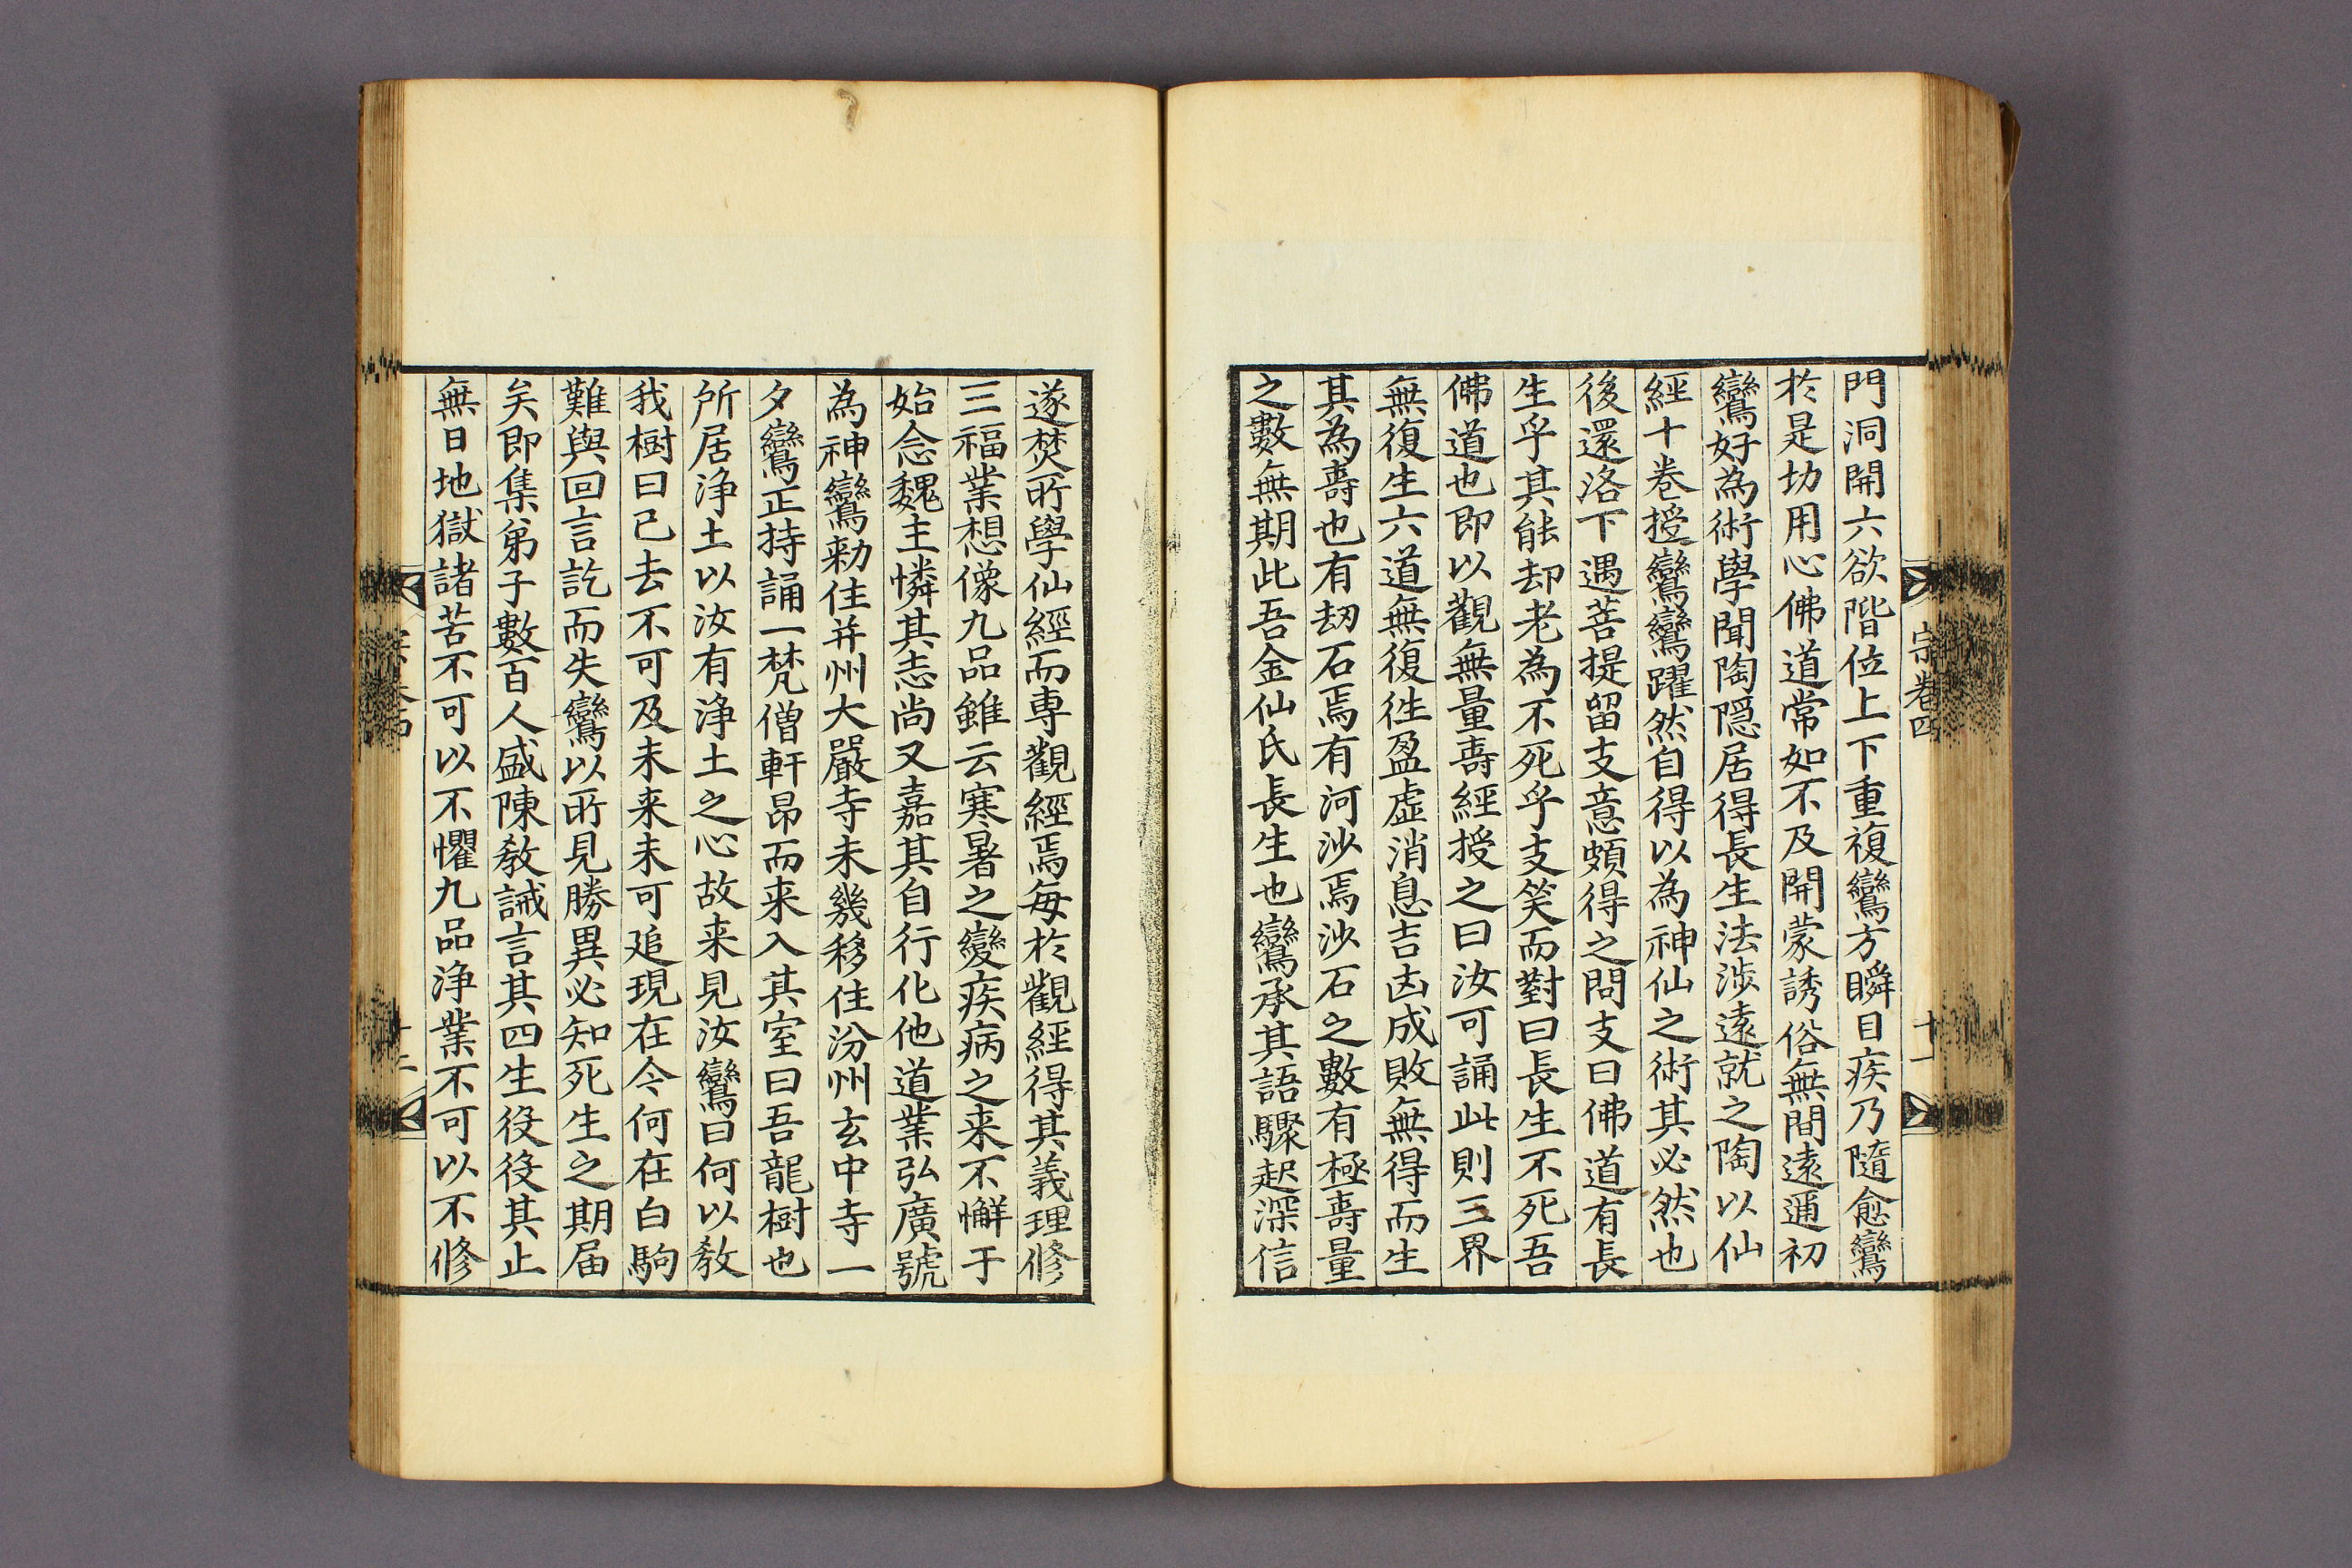 門洞開六欲階位上下重複鸞方瞬目疾乃隨愈鸞
於是切用心佛道常如不及開蒙誘俗無間遠邇初
鸞好為術學聞陶隠居得長生法渉遠就之陶以仙
經十卷授鸞鸞躍然自得以為神仙之術其必然也
後還洛下遇菩提留支意頗得之問支曰佛道有長
生乎其能却老為不死乎支笑而對曰長生不死吾
佛道也即以觀無量壽經授之曰汝可誦此則三界
無復生六道無復徃盈虛消息吉凶成敗無得而生
其為壽也有劫石焉有河沙焉沙石之數有極壽量
之數無期此吾金仙氏長生也鸞承其語驟起深信
宗卷四
十一
遂焚所學仙經而專觀經焉每於觀經得其義理修
三福業想像九品雖云寒暑之變疾病之来不懈于
始念魏主憐其志尚又嘉其自行化他道業弘廣號
為神鸞勑住并州大嚴寺未幾移住汾州玄中寺一
夕鸞正持誦一梵僧軒昂而来入其室曰吾龍樹也
所居淨土以汝有淨土之心故来見汝鸞曰何以教
我樹曰已去不可及未来未可追現在今何在白駒
難與回言訖而失鸞以所見勝異必知死生之期届
矣即集弟子數百人盛陳教誡言其四生役役其止
無日地獄諸苦不可以不懼九品淨業不可以不修